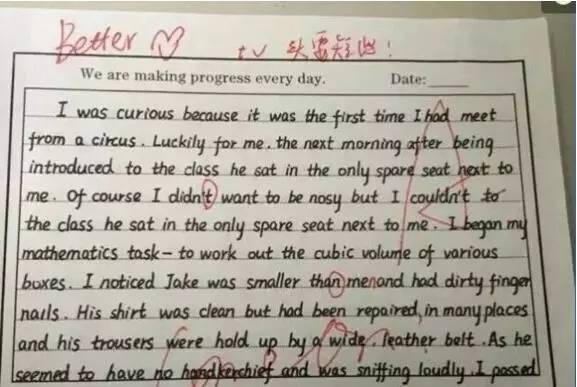 Better
tv 头要短些!
We are making progress every day. Date:
I was curious because it was the first time I had meet
from a circus. Luckily for me, the next morning after being
introduced to the class he sat in the only spare seat next to
me. Of course I didn't want to be nosy but I couldn't to
the class he sat in the only spare seat next to me. I began my
mathematics task - to work out the cubic volume of various
boxes. I noticed Jake was smaller than men and had dirty finger
nails. His shirt was clean but had been repaired, in many places
and his trousers were hold up by a wide, leather belt. As he
seemed to have no handkerchief and was sniffing loudly. I passed